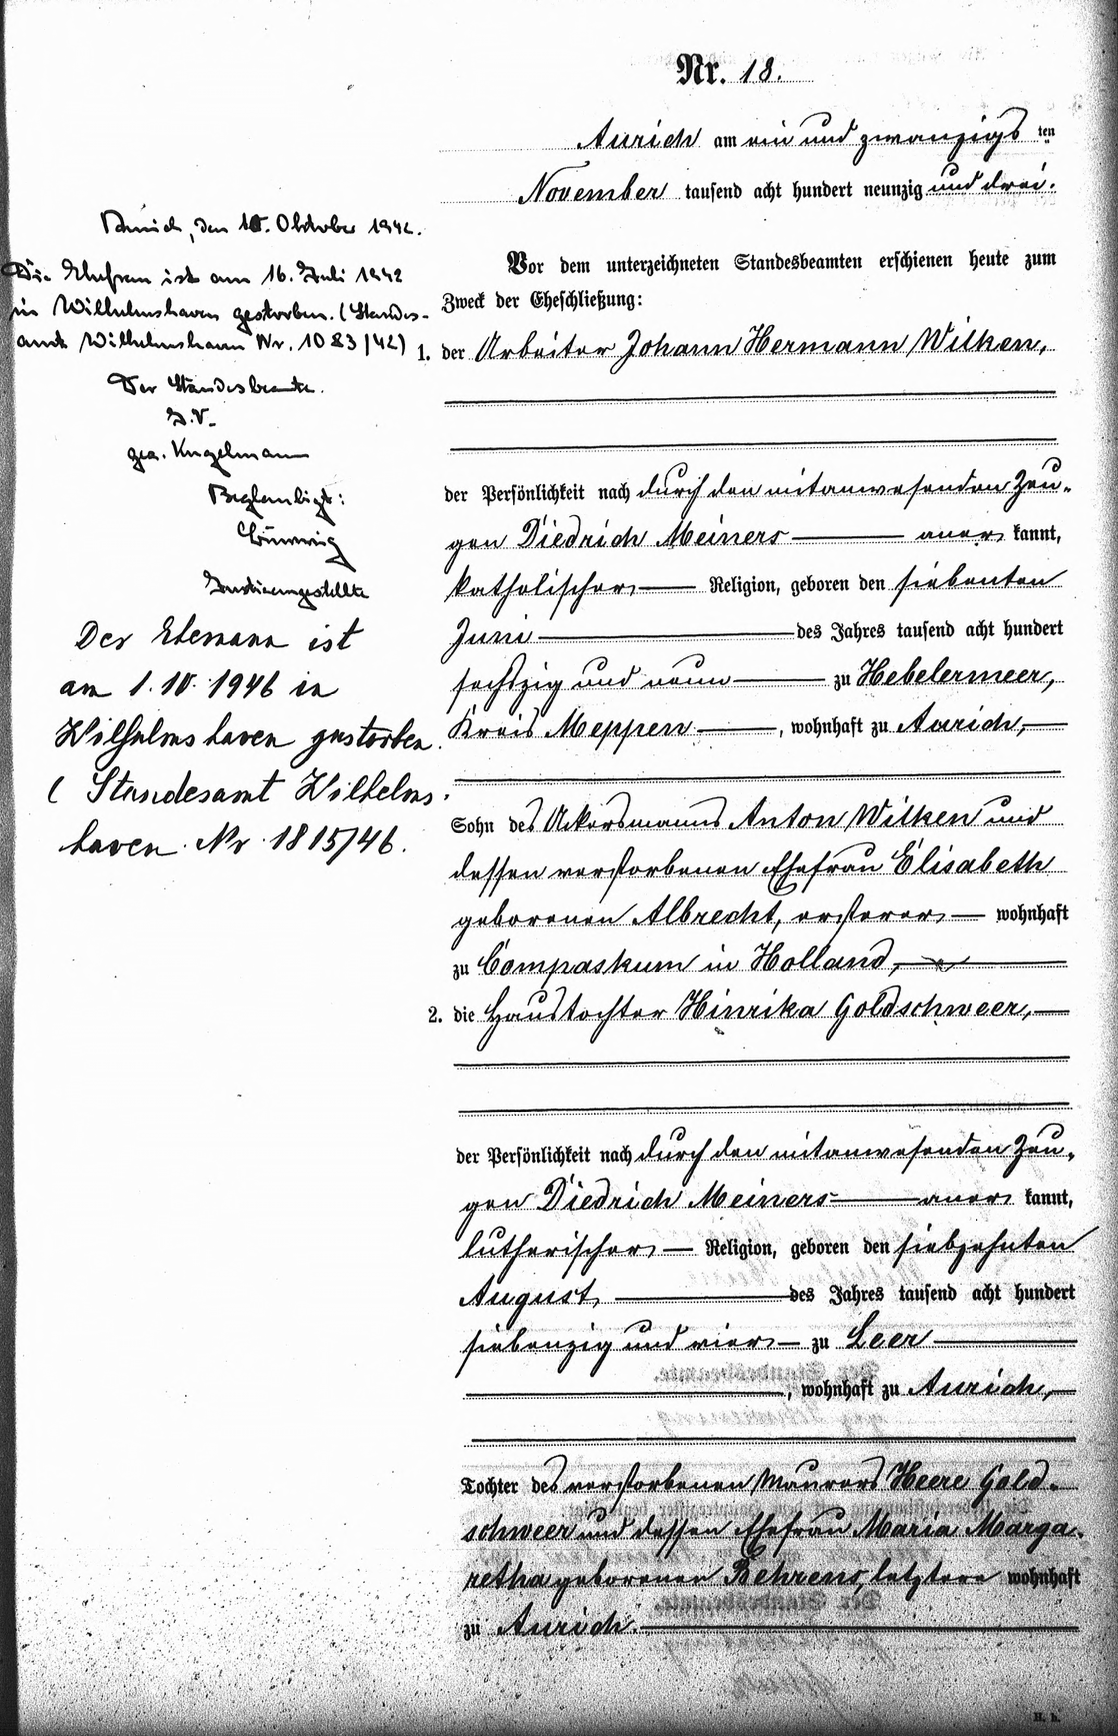 Nr. 18.
Aurich am ein und zwanzigsten
November tausend acht hundert neunzig und drei.
Vor dem unterzeichneten Standesbeamten erschienen heute zum
Zweck der Eheschließung:
1. der Arbeiter Johann Hermann Wilken,
der Persönlichkeit nach durch den mitanwesenden Zeu-
gen Diedrich Meiners aner kannt,
katholischer Religion, geboren den siebenten
Juni des Jahres tausend acht hundert
sechszig und neun zu Hebelermeer,
Kreis Meppen, wohnhaft zu Aurich,
Sohn des Ackersmanns Anton Wilken und
dessen verstorbenen Ehefrau Elisabeth
geborenen Albrecht, ersterer wohnhaft
zu Compaskum in Holland,
2. die Haustochter Hinrika Goldschweer,
der Persönlichkeit nach durch den mitanwesenden Zeu-
gen Diedrich Meiners aner kannt,
lutherischer Religion, geboren den siebzehnten
August des Jahres tausend acht hundert
siebenzig und vier zu Leer
, wohnhaft zu Aurich,
Tochter des verstorbenen Maurers Heere Gold-
schweer und dessen Ehefrau Maria Marga-
retha geborenen Behrens, letztere wohnhaft
zu Aurich.
H. h.
Aurich, den 10. Oktober 1942.
Die Ehefrau ist am 16. Juli 1942
in Wilhelmshaven gestorben. (Standes-
amt Wilhelmshaven Nr. 1083/42)
Der Standesbeamte.
I.V.
gez. Kugelmann
Beglaubigt:
Justizangestellte
Der Ehemann ist
am 1. 10. 1946 in
Wilhelmshaven gestorben.
( Standesamt Wilhelms-
haven Nr. 1815/46.